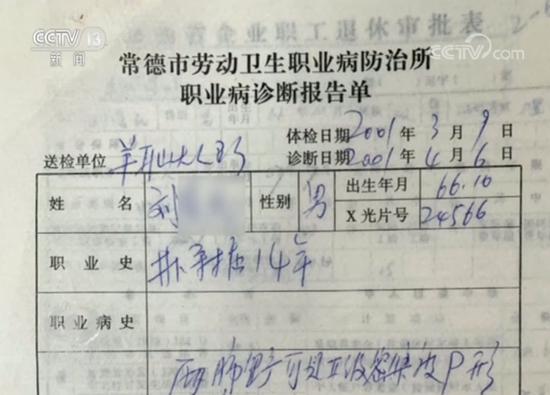 CCTV 13
新闻
CCTV.com
企业职工退休审批表
常德市劳动卫生职业病防治所
职业病诊断报告单
体检日期2001年3月9日
送检单位 诊断日期2001年4月6日
姓名 刘 性别 男 出生年月 66.10
X光片号 24566
职业史 井下采掘14年
职业病史
两肺野可见 级密集度P形